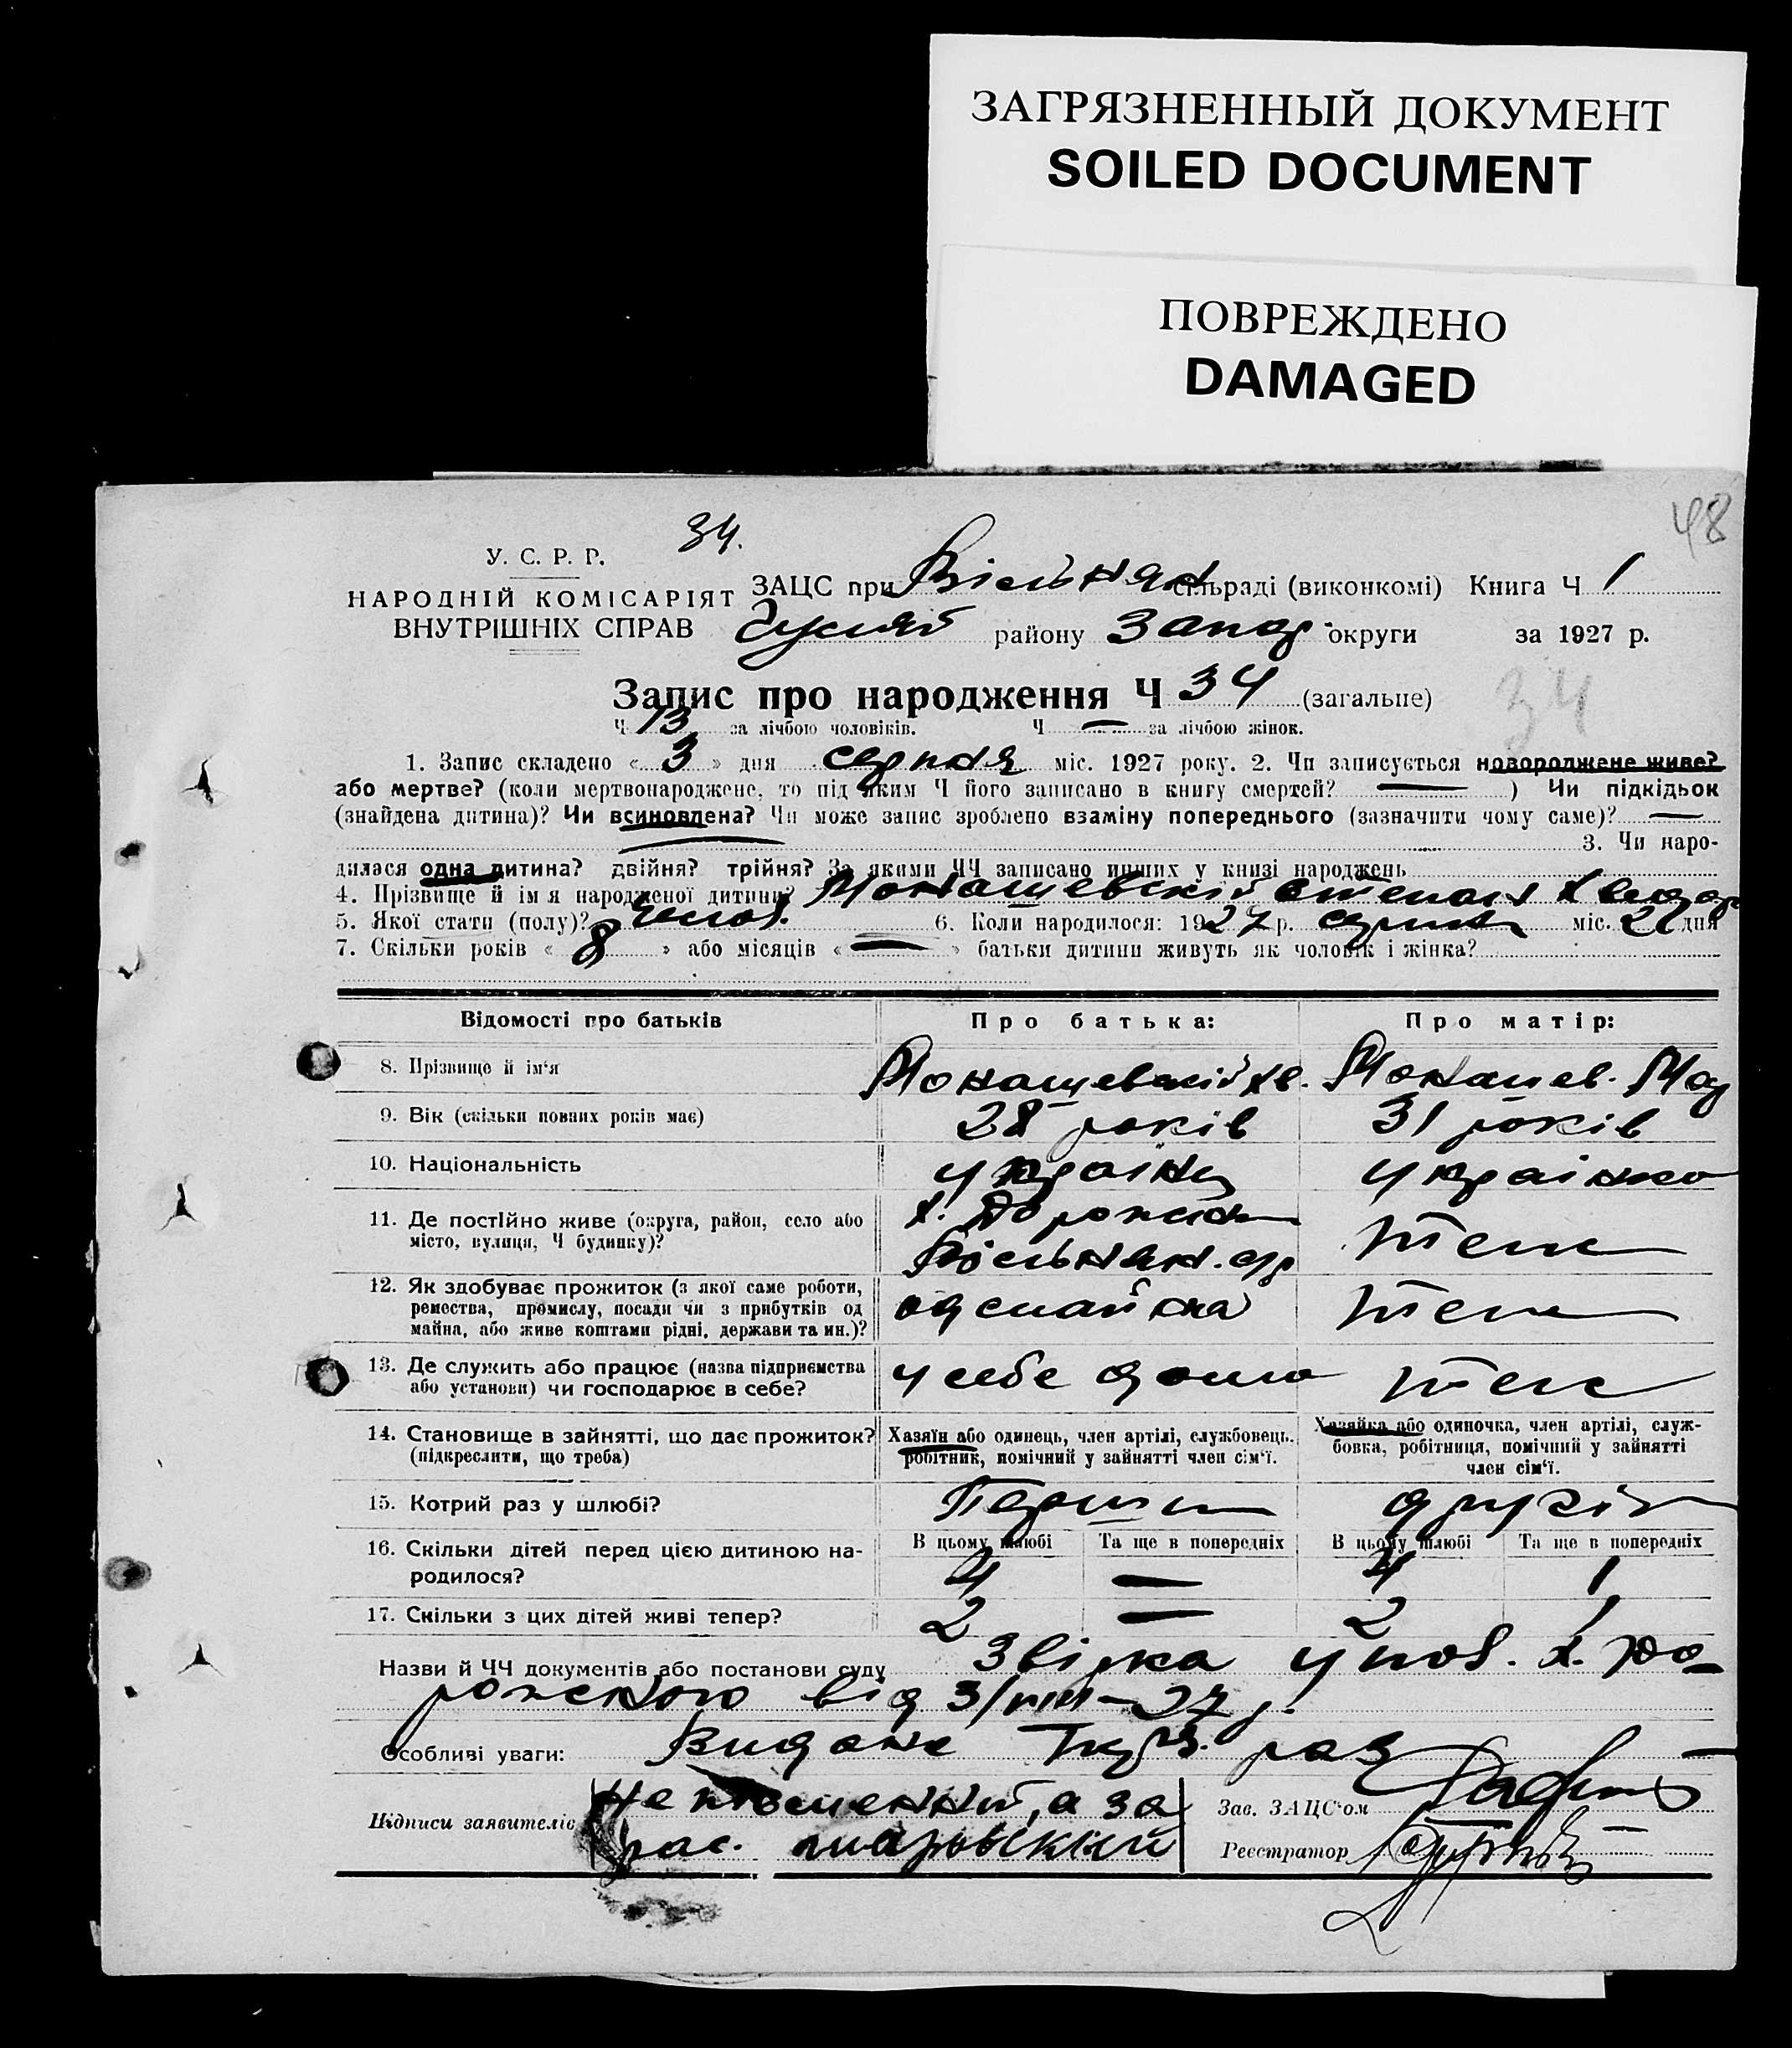 ЗАГРЯЗНЕННЫЙ ДОКУМЕНТ
SOILED DOCUMENT
ПОВРЕЖДЕНО
DAMAGED
48
34.
У. С. Р. Р.
НАРОДНІЙ КОМІСАРІЯТ
ВНУТРІШНІХ СПРАВ
ЗАЦС при Вільнян сільраді (виконкомі) Книга Ч 1
району Запор. округи за 1927 р.
Запис про народження Ч 34 (загальне)
34
Ч 13 за лічбою чоловіків. Ч — за лічбою жінок.
1. Запис складено « 3 » дня серпня міс. 1927 року. 2. Чи записується новороджене живе?
або мертве? (коли мертвонароджене, то під яким Ч його записано в книгу смертей? — ) Чи підкідьок
(знайдена дитина)? Чи всиновлена? Чи може запис зроблено взаміну попереднього (зазначити чому саме)? —
3. Чи наро-
дилася одна дитина? двійня? трійня? За якими ЧЧ записано инших у книзі народжень
4. Прізвище й ім'я народженої дитини? Монашевській Степан Хведор
5. Якої стати (полу)? чолов. 6. Коли народилося: 1927 р. серпня міс. 2 дня
7. Скільки років « 8 » або місяців « — » батьки дитини живуть як чоловік і жінка?
Відомості про батьків Про батька: Про матір:
8. Прізвище й ім'я Монашевській Хв. Монашев. Мар
9. Вік (скільки повних років має) 28 років 31 років
10. Національність українц українка
11. Де постійно живе (округа, район, село або
місто, вулиця, Ч будинку)?
х.
Вільнян. с/р
теж
12. Як здобуває прожиток (з якої саме роботи,
ремества, промислу, посади чи з прибутків од
майна, або живе коштами рідні, держави та ин.)?
теж
13. Де служить або працює (назва підприємства
або установи) чи господарює в себе?
у себе дома теж
14. Становище в зайнятті, що дає прожиток?
(підкреслити, що треба)
Хазяїн або одинець, член артілі, службовець,
робітник, помічний у зайнятті член сім'ї.
Хазяйка або одиночка, член артілі, служ-
бовка, робітниця, помічний у зайнятті
член сім'ї.
15. Котрий раз у шлюбі? Перши другій
16. Скільки дітей перед цією дитиною на-
родилося?
В цьому шлюбі Та ще в попередніх В цьому шлюбі Та ще в попередніх
4 — 4 1
17. Скільки з цих дітей живі тепер? 2 — 2 1
Назви й ЧЧ документів або постанови суду Звірка упов. х. До-
рожного від 3/VIII-27 р.
Особливі уваги: Видане
Підписи заявителів Не письменний, а за
рос.
Зав. ЗАЦС'ом
Реєстратор